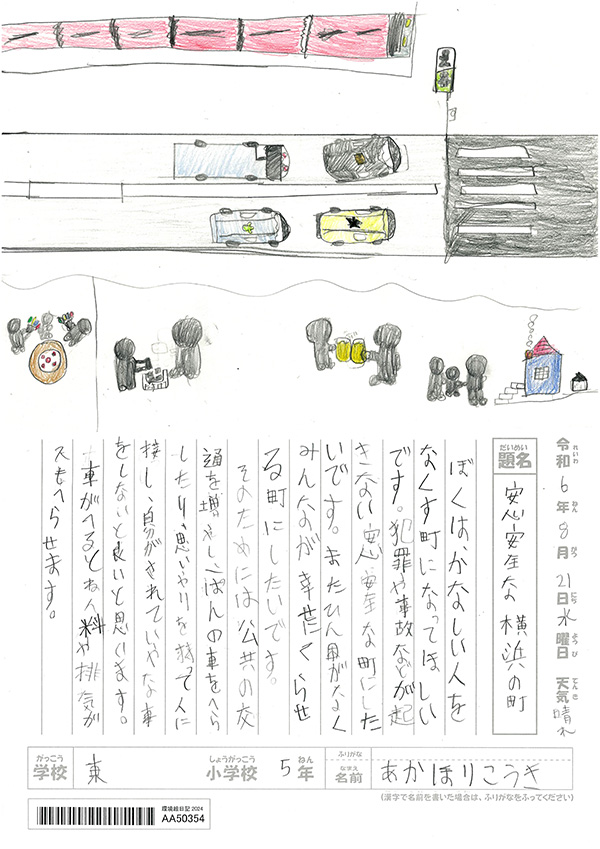 令和6年8月21日水曜日 天気晴れ
れいわ ねん がつ にち ようび てんき
だいめい
題名
安心安全な横浜の町
ぼくは、かなしい人を
なくす町になってほしい
です。犯罪や事故などが起
きない安心安全な町にした
いです。またひん困がなく
みんなが幸せにくらせ
る町にしたいです。
そのためには公共の交
通を増やしいっぱんの車をへら
したり、思いやりを持って人に
接し、自分がされていやな事
をしないと良いと思います。
車がへるとねん料や排気ガ
スもへらせます。
がっこう
学校
東
しょうがっこう
小学校
5年
ねん
ふりがな
なまえ
名前
あかほりこうき
(漢字で名前を書いた場合は、ふりがなをふってください)
環境絵日記2024
AA50354